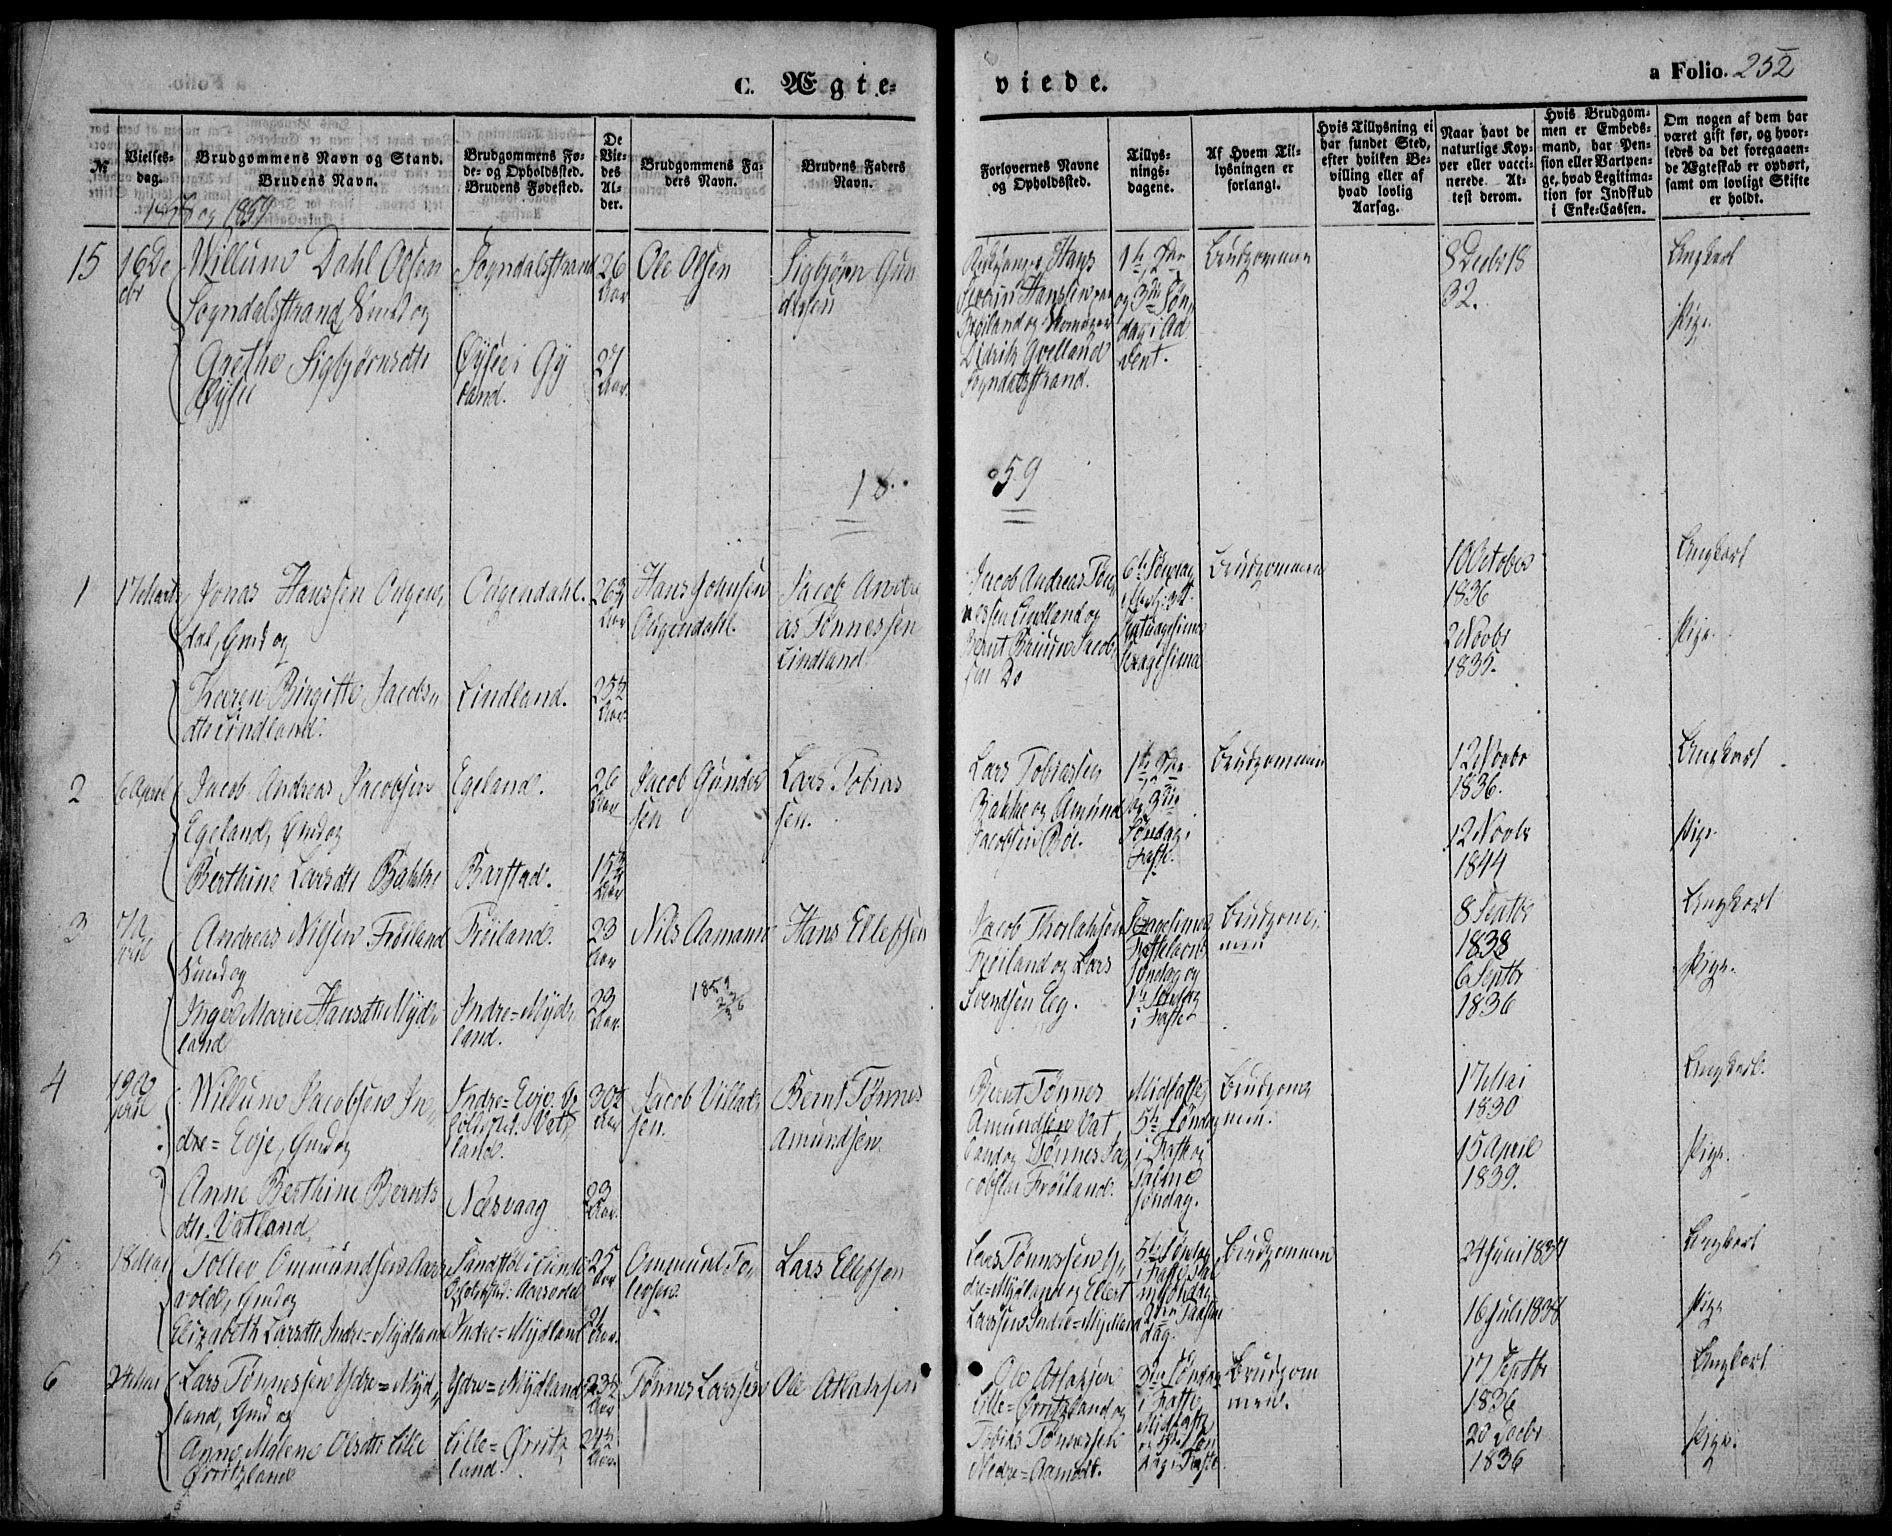 C. Ægte-
viede.
a Folio. 252
№
Vielses-
dag.
Brudgommens Navn og Stand.
Brudens Navn.
Brudgommens Fø-
de- og Opholdssted.
Brudens Fødested.
De
Vie-
des
Al-
der.
Brudgommens Fa-
ders Navn.
Brudens Faders
Navn.
Forlovernes Navne
og Opholdssted.
Tillys-
nings-
dagene.
Af Hvem Til-
lysningen er
forlangt.
Hvis Tillysning ei
har fundet Sted,
efter hvilken Be-
villing eller af
hvad lovlig
Aarsag.
Naar havt de
naturlige Kop-
per eller vacci-
nerede. At-
test derom.
Hvis Brudgom-
men er Embeds-
mand, har Pen-
sion eller Vartpen-
ge, hvad Legitima-
tion for Indskud
i Enke-Cassen.
Om nogen af dem har
været gift før, og hvor-
ledes da det foregaaen-
de Ægteskab er ophørt,
samt om lovligt Skifte
er holdt.
1858 og 1859
15
16 De
cbr
Willum Dahl Olsen
Sogndalsstrand, Smed og
Grethe Sigbjørnsdtr
Øysee
Sogndalsstrand
Øysee i Gy
land.
26
Aar
27
Aar.
Ole Olsen
Sigbjørn Gun
dersen
Hans
Severin Hanssen
Frøiland og
Didrik
Sogndalsstrand.
1te, 2den
og 3die Søn,
dag i Ad
vent.
Brudgommen
8 Decbr 18
32.
Ungkarl
Pige.
1859
1
17 Marts
Jonas Hanssen Ougen,
dal, Gmd og
Karen Birgitte Jacobs,
dtr Lindland.
Ougendahl.
Lindland.
26¾
Aar
25½
Aar.
Hans Johnsen
Ougendahl.
Jacob Andre
as Tønnessen
Lindland
Jacob Andreas Tøn,
nessen Lindland og
Bernt Jacob,
sen Do
6te Søndag
Septuagesima
Sexagesima
Brudgommen
10 October
1836
2 Novbr
1835.
Ungkarl
Pige.
2
6 April
Jacob Andreas Jacobsen
Egeland, Gmd og
Berthine Larsdtr Bakke
Egeland.
Barstad.
26
Aar
15¾
Aar
Jacob Gunder
sen
Lars Tobias
sen.
Lars Tobiassen
Bakke og Amund
Jacobsen Bøe.
1te, 2den
og 3die
Søndag i
Faste.
Brudgommen
12 Novbr
1836.
12 Novbr
1844
Ungkarl
Pige.
3
Andreas Nilsen Frøiland
Smed og
Inger Marie Hansdtr Myd,
land
Frøiland.
Indre=Myd,
land.
23
Aar
23
Aar.
Nils Aamann
Hans Ellefsen
Jacob Thorlaksen
Frøiland og Lars
Svendsen Eeg.
Sexagesima,
Fastelavns
Søndag og
1te Søndag
i Faste
Brudgom,
men
8 Septbr
1838
6 Septbr
1836
Ungkarl
Pige.
4
Willum Jacobsen In,
dre=Evje, Gmd og
Anne Berthine Bernts
dtr. Vatland
Indre=Evje.
Vat,
land.
Næsvaag
30½
Aar
23
Aar.
Jacob Villads
sen.
Bernt Tønnes
Amundsen
Bernt Tønnes
Amundsen Vat,
land og Tønnes Ja,
cobsen Frøiland.
Midfaste,
5te Søndag
i Faste og
Palme
søndag.
Brudgom
men.
17 Mai
1830
15 April
1839.
Ungkarl.
Pige.
5
18 Mai
Tollev Ommundsen Aars,
vold, Gmd og
Elizabeth Larsdtr Indre=Mydland
Sandstøl i Lunde
Opholdssted: Aarsvold
Indre=Mydland
25
Aar
21
Aar.
Ommund To,
levsen
Lars Ellefsen
Lars Tønnessen In,
dre=Mydland og Ellert
Larssen Indre=Mydland
5te Søndag
i Faste, Pal
mesøndag,
2den Paaske
dag.
Brudgommen
24 Juni 1834
16 Juli 1838
Ungkarl
Pige
6
24 Mai
Lars Tønnessen Ydre=Myd,
land, Gmd og
Anne Malene Olsdtr Lille
Ørritzland
Ydre=Mydland
Lille=Ørritz,
land.
23½
Aar
24½
Aar.
Tønnes Larssen
Ole Atlaksen
Ole Atlaksen
Lille=Ørritzland og
Tobias Tønnessen
Nedre=Aamodt.
3die Søndag
i Faste,
Midfaste
og 5te Søn
dag i Faste.
Brudgom
men.
17 Septbr
1836
20 Decbr
1836
Ungkarl
Pige.